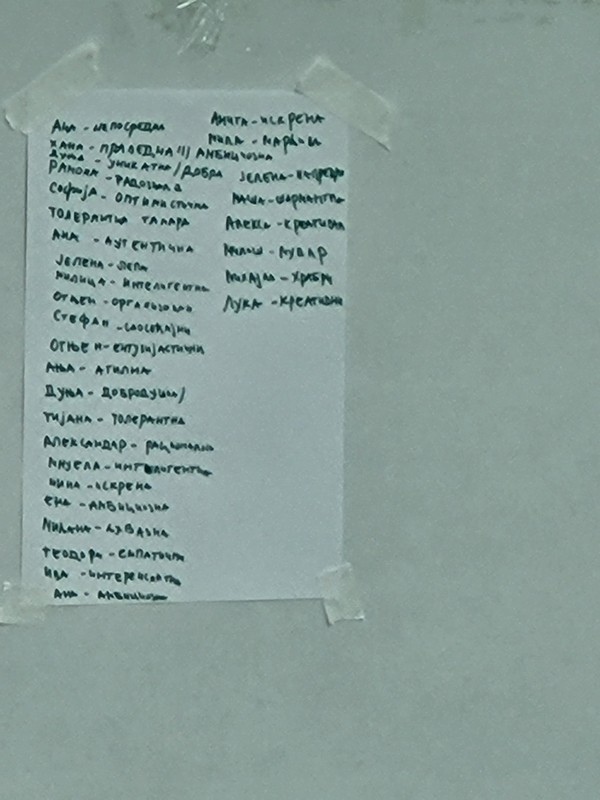 Ања - непосредна
Хана - праведна /// амбициозна
Дуња - уникатна / добра
Рамона - радознала
Софија - оптимистична
Толерантна Тамара
Ана - аутентична
Јелена - лепа
Милица - интелигентна
Огњен - организован
Стефан - саосећајни
Огњен - ентузијастични
Ања - агилна
Дуња - добродушна/
Тијана - толерантна
Александар - рационални
Анђела - интелигентна
Нина - искрена
Ена - амбициозна
Милана - љубазна
Теодора - емпатична
Ива - интересантна
Ана - амбициозна
Анита - искрена
Мила - марљива
Јелена -
Маша - шармантна
Алекса - креативни
Милош - мудар
Михајло - храбри
Лука - креативни